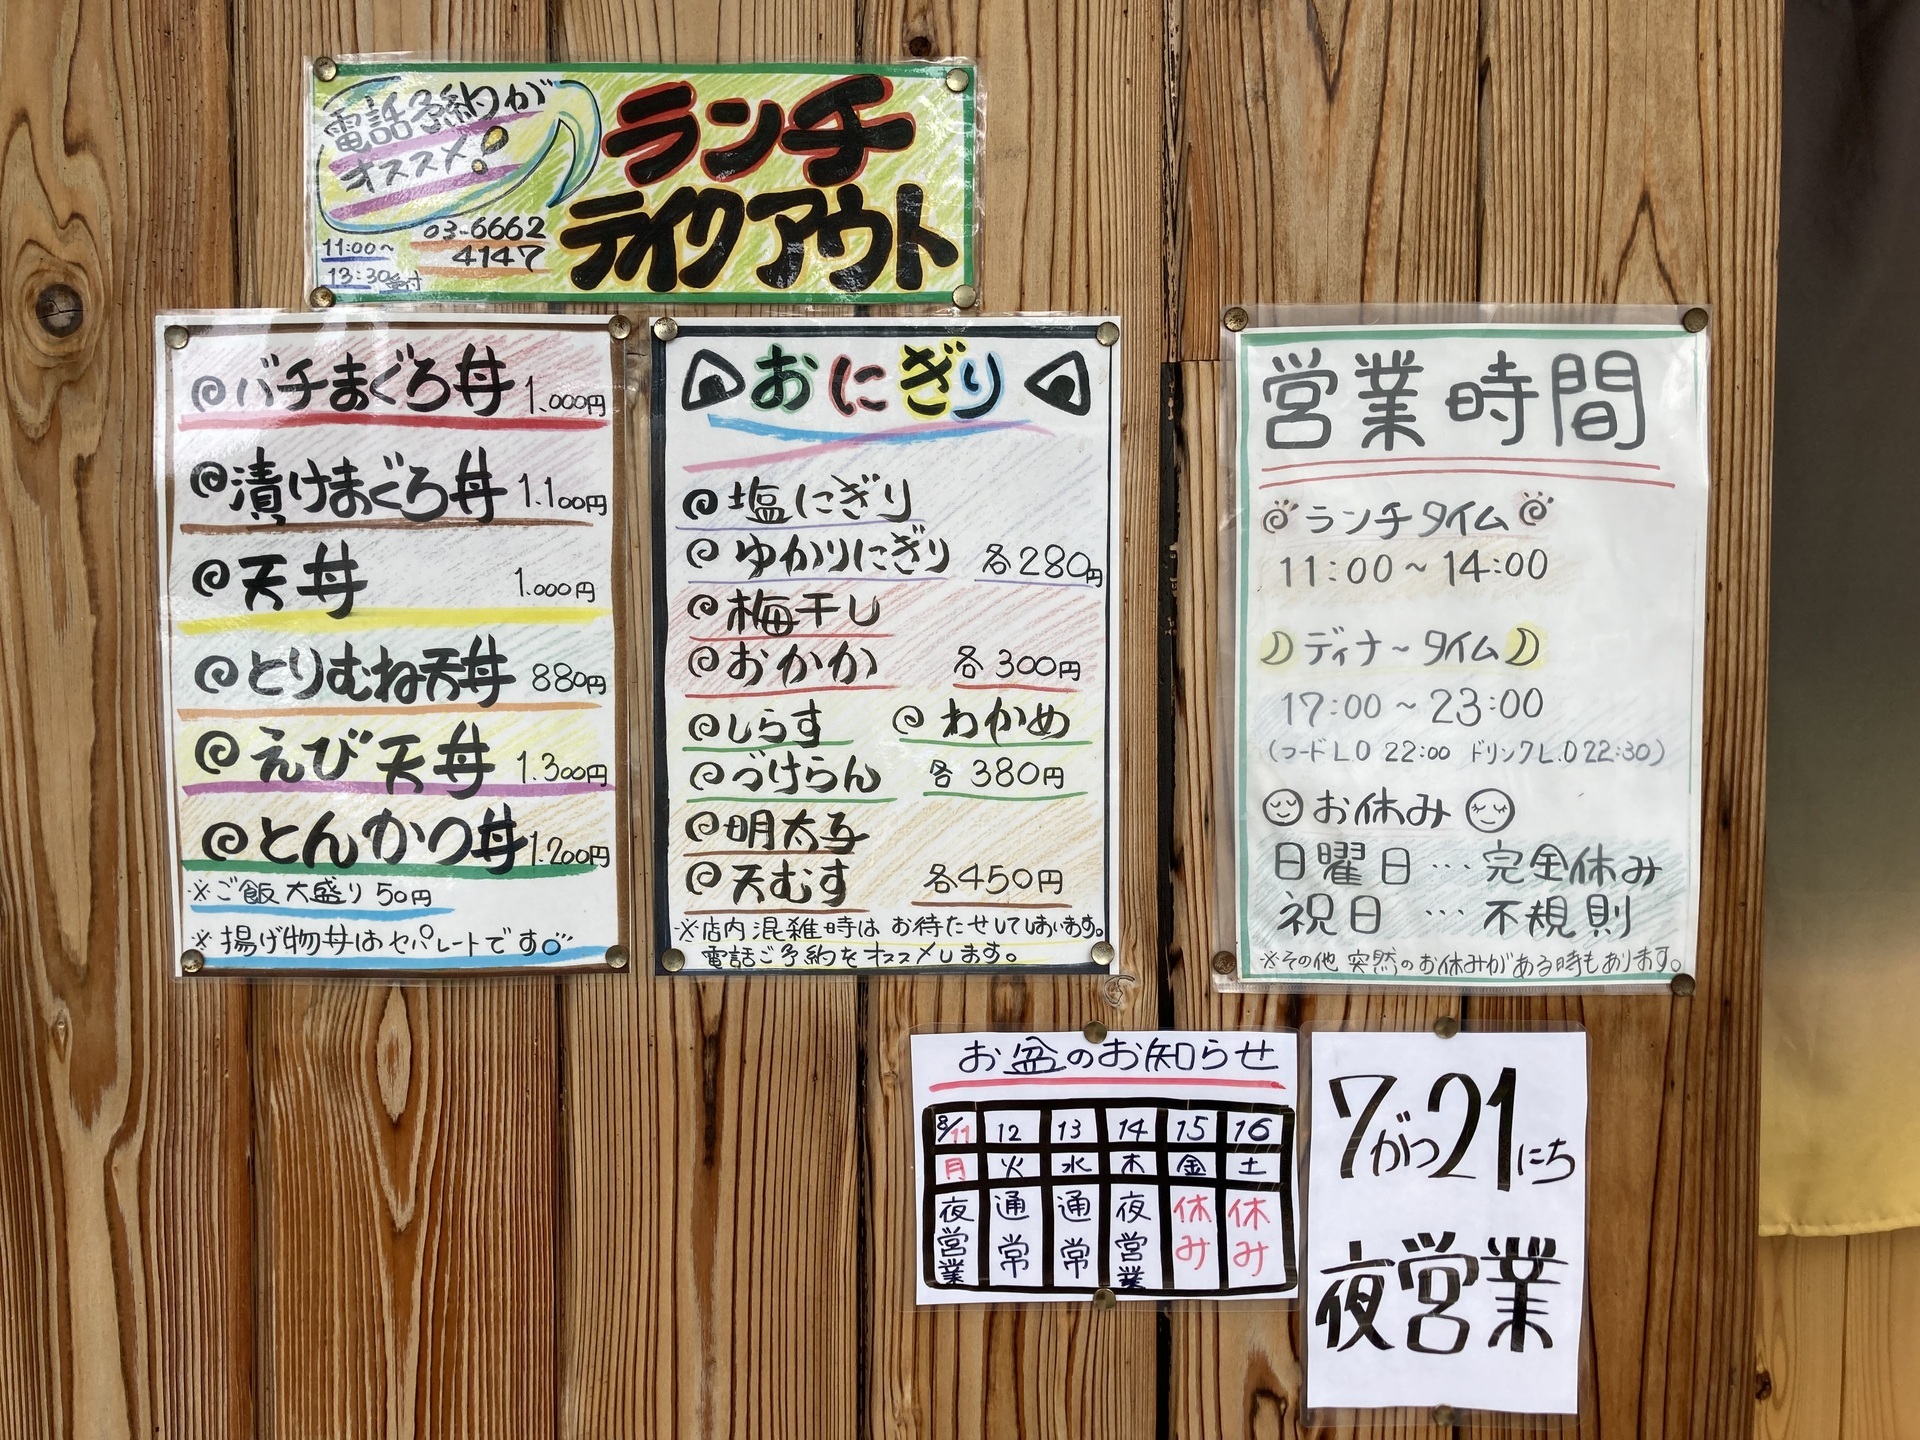 電話予約が
オススメ!
03-6662
4147
11:00~
13:30受付
ランチ
テイクアウト
バチまぐろ丼 1.000円
漬けまぐろ丼 1.100円
天丼 1.000円
とりむね天丼 880円
えび天丼 1.300円
とんかつ丼 1.200円
※ご飯大盛り 50円
※揚げ物丼はセパレートです
おにぎり
塩にぎり
ゆかりにぎり 各280円
梅干し
おかか 各300円
しらす わかめ
づけらん 各380円
明太子
天むす 各450円
※店内混雑時は お待たせしてしまいます。
電話ご予約をオススメします。
営業時間
ランチタイム
11:00~14:00
ディナ~タイム
17:00~23:00
(フードL.O 22:00 ドリンクL.O 22:30)
お休み
日曜日…完全休み
祝日 …不規則
※その他 突然のお休みがある時もあります。
お盆のお知らせ
8/11 12 13 14 15 16
月 火 水 木 金 土
夜営業 通常 通常 夜営業 休み 休み
7がつ21にち
夜営業